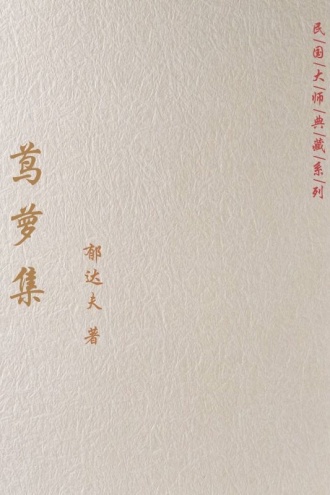 民国大师典藏系列
茑萝集
郁达夫 著